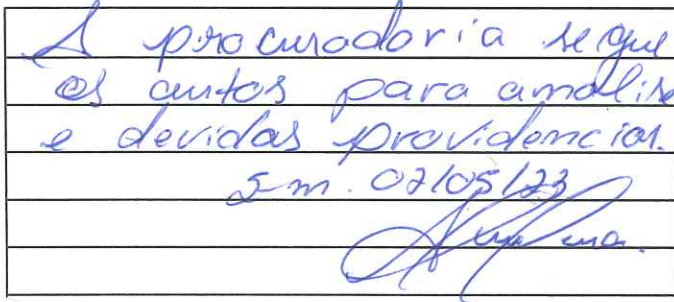 A procuradoria segue
os autos para analise
e devidas providencias.
Em. 02/05/23